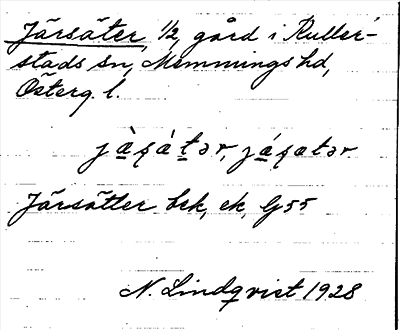 Järsäter, 1/2, gård i Kuller-
stads sn, Memmings hd,
Österg. l.
jàʂátər, jáʂatər
Järsätter bek, ek, G55
N. Lindqvist 1928